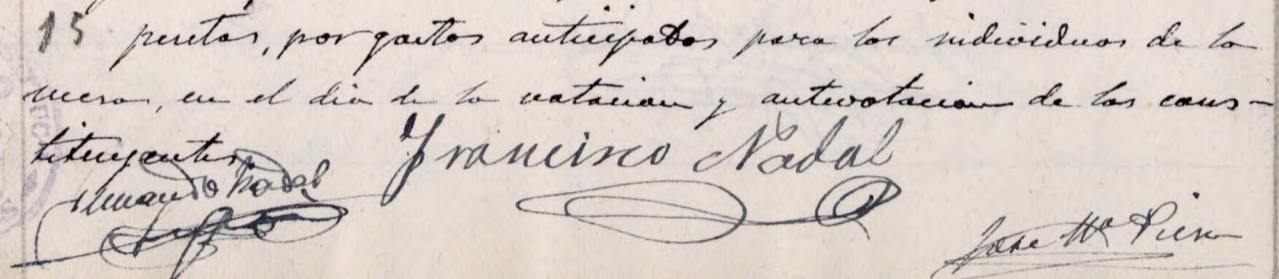 15 pesetas, por gastos anticipados para los individuos de la
mesa, en el dia de la votacion y antevotacion de las cons-
tituyentes.
Francisco Nadal
Fernando Nadal
Jose Mª Piera